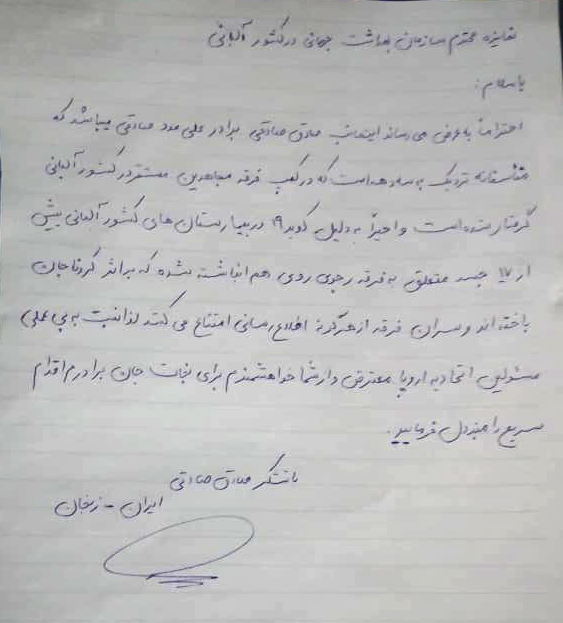 نماینده محترم سازمان بهداشت جهانی در کشور آلبانی
باسلام:
احتراماً به عرض می رساند اینجانب صادق صادقی برادر علی مدد صادقی میباشد که
متأسفانه نزدیک به سه دهه است که در کمپ فرقه مجاهدین مستقر در کشور آلبانی
گرفتار شده است و اخیراً به دلیل کوید ۱۹ در بیمارستان های کشور آلبانی بیش
از ۱۷ جسد متعلق به فرقه رجوی روی هم انباشته شده که بر اثر کرونا جان
باخته اند و سران فرقه از هرگونه اطلاع رسانی امتناع می کنند لذا نسبت به بی عملی
مسئولین اتحادیه اروپا معترض و از شما خواهشمندم برای نجات جان برادرم اقدام
سریع را مبذول فرمایید.
باتشکر صادق صادقی
ایران - زنجان